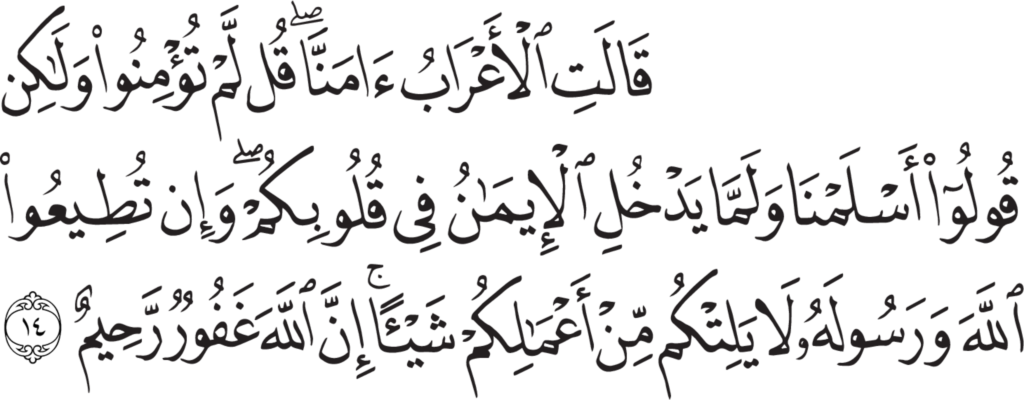 قَالَتِ ٱلۡأَعۡرَابُ ءَامَنَّاۖ قُل لَّمۡ تُؤۡمِنُواْ وَلَٰكِن
قُولُوٓاْ أَسۡلَمۡنَا وَلَمَّا يَدۡخُلِ ٱلۡإِيمَٰنُ فِي قُلُوبِكُمۡۖ وَإِن تُطِيعُواْ
ٱللَّهَ وَرَسُولَهُۥ لَا يَلِتۡكُم مِّنۡ أَعۡمَٰلِكُمۡ شَيۡـًٔاۚ إِنَّ ٱللَّهَ غَفُورٞ رَّحِيمٌ ١٤